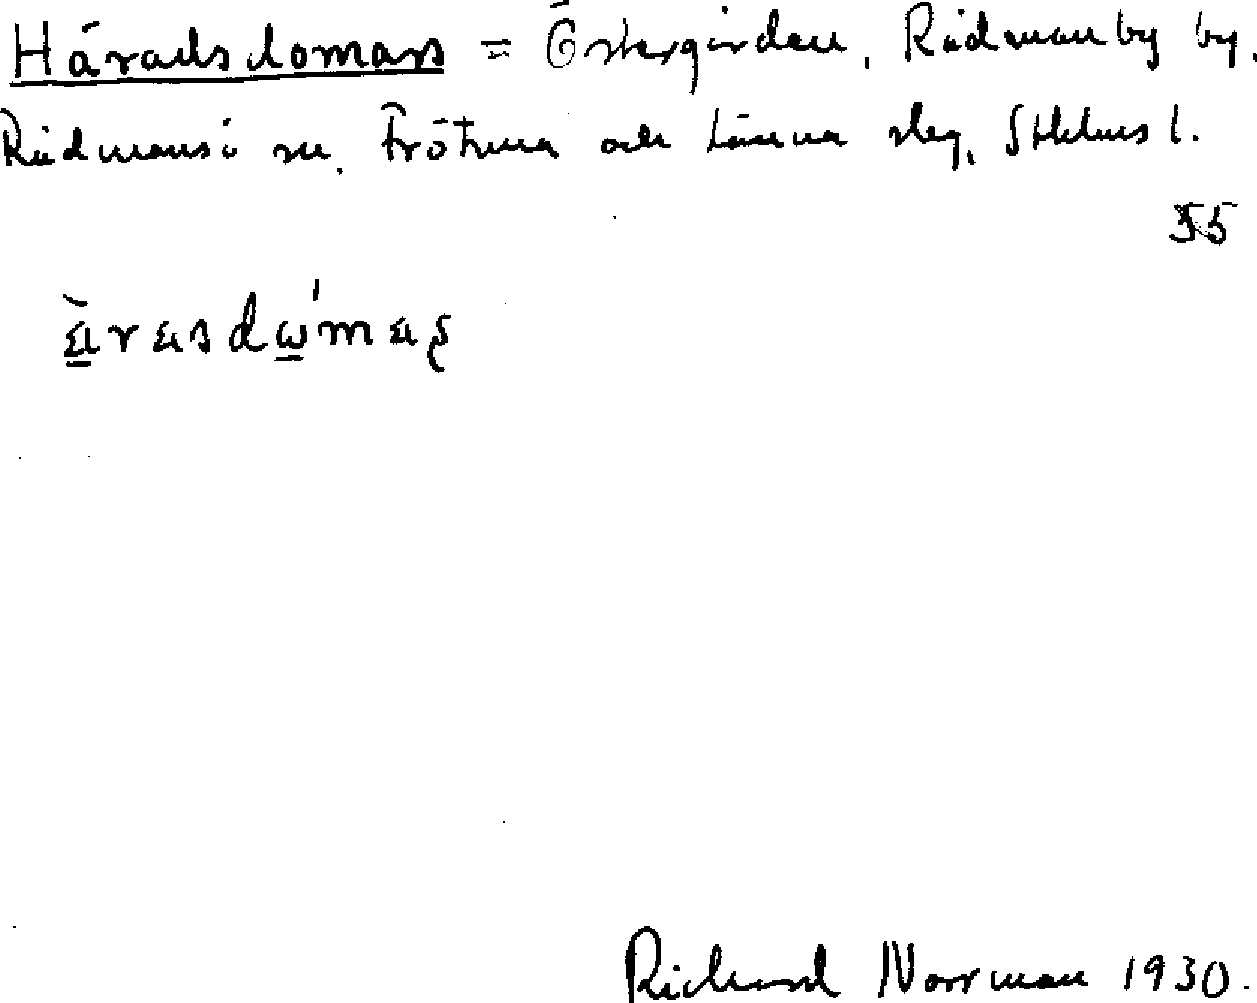 Häradsdomars = Östergården, Rådmanby by,
Rådmansö sn. Frötuna och Länna slag, Sthlms l.
55
àrasdω'mаș
Richard Norrman 1930.